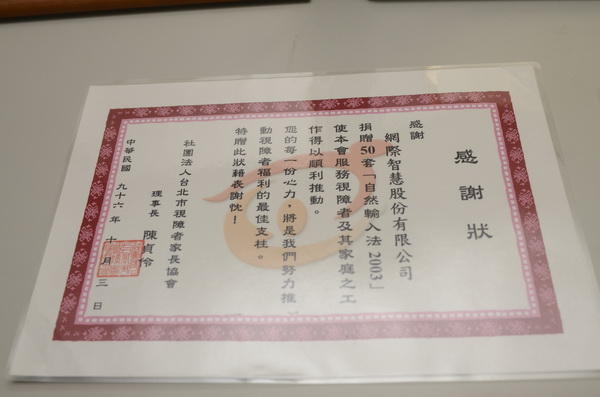 感謝狀
感謝
網際智慧股份有限公司
捐贈50套「自然輸入法 2003」
使本會服務視障者及其家庭之工
作得以順利推動。
您的每一份心力，將是我們努力推
動視障者福利的最佳支柱。
特贈此狀藉表謝忱！
社團法人台北市視障者家長協會
理事長 陳貞伶
中華民國 九十六 年 十 月 三 日